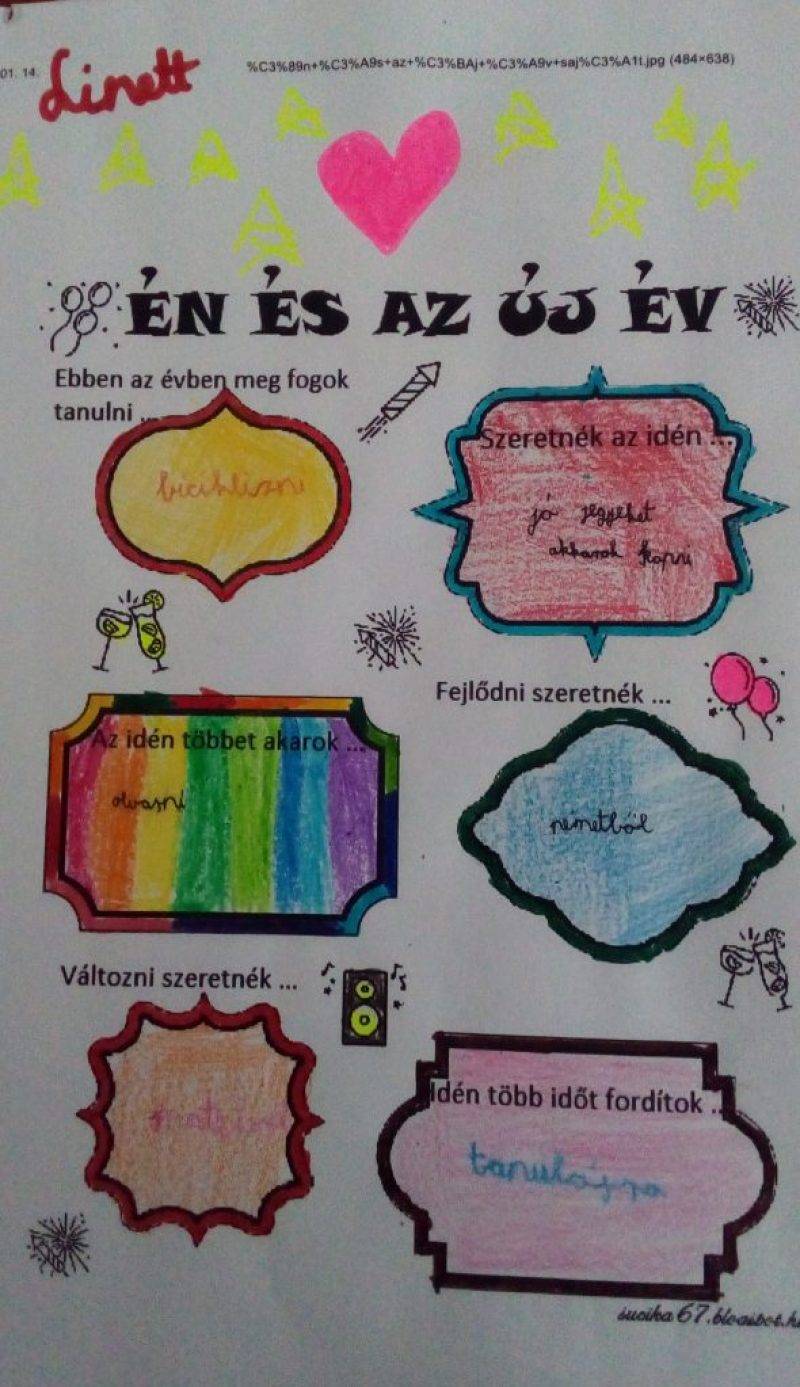 01. 14.
%C3%89n+%C3%A9s+az+%C3%BAj+%C3%A9v+saj%C3%A1t.jpg (484×638)
Linett
ÉN ÉS AZ ÚJ ÉV
Ebben az évben meg fogok
tanulni ...
biciklizni
Szeretnék az idén ...
jó jegyeket
akkarok kapni
Az idén többet akarok ...
olvasni
Fejlődni szeretnék ...
németből
Változni szeretnék ...
Idén több időt fordítok ...
tanulásra